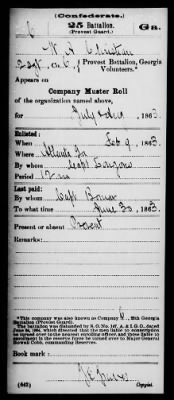 (Confederate.)
25 Battalion.
(Provost Guard.)
Ga.
W H Christian
2 Sgt, Co. C, Provost Battalion, Georgia
Volunteers.*
Appears on
Company Muster Roll
of the organization named above,
for July & Aug, 1863.
Enlisted:
When Feb 9, 1863.
Where Atlanta Ga
By whom Capt
Period 12 mos
Last paid:
By whom Capt
To what time June 30, 1863.
Present or absent Present
Remarks:
*This company was also known as Company C, 25th Georgia
Battalion (Provost Guard).
The battalion was disbanded by S. O. No. 147, A. & I. G. O., dated
June 24, 1864, which directed that the men liable to conscription
be turned over to the nearest enrolling officer and those liable to
enrollment in the reserve force be turned over to Major General
Howell Cobb, commanding Georgia Reserves.
Book mark:
(642)
Copyist.